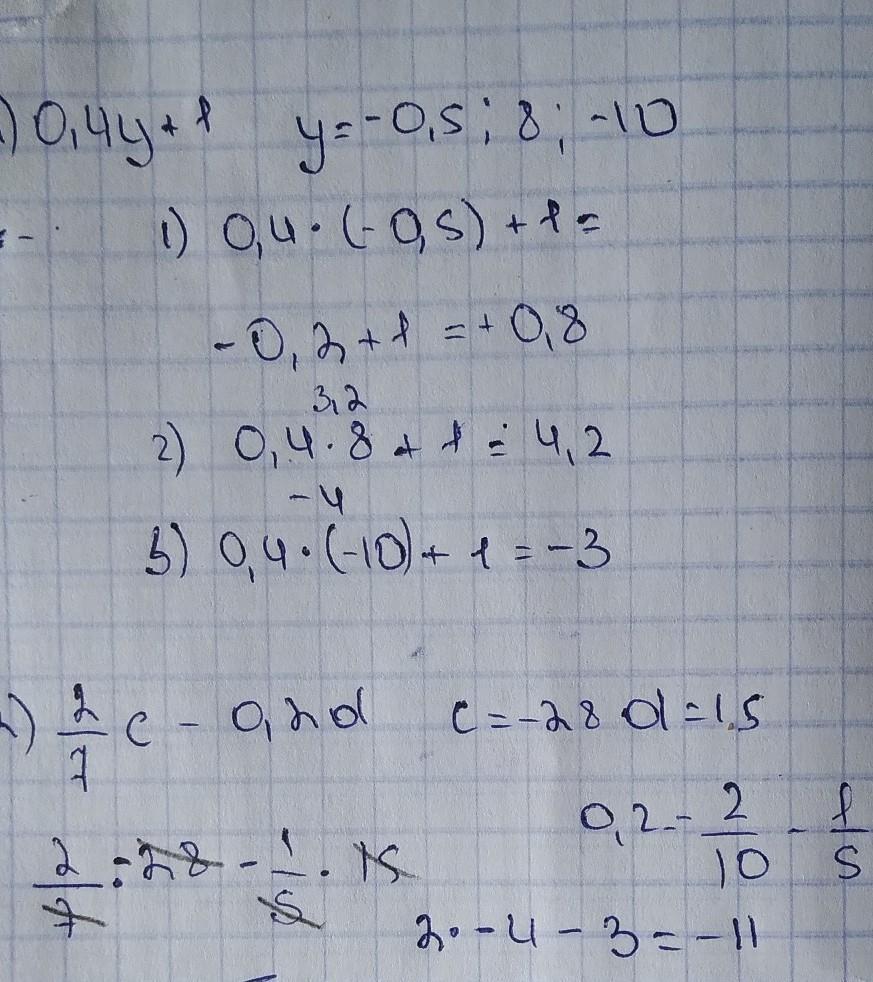 ) 0,4y + 1 y = -0,5; 8; -10
1) 0,4 · (-0,5) + 1 =
-0,2 + 1 = + 0,8
3,2
2) 0,4 · 8 + 1 = 4,2
-4
3) 0,4 · (-10) + 1 = -3
) 2/7 c - 0,2d c = -28 d = 15
0,2 - 2/10 - 1/5
2/7 · -28 - 1/5 · 15
2 · -4 - 3 = -11